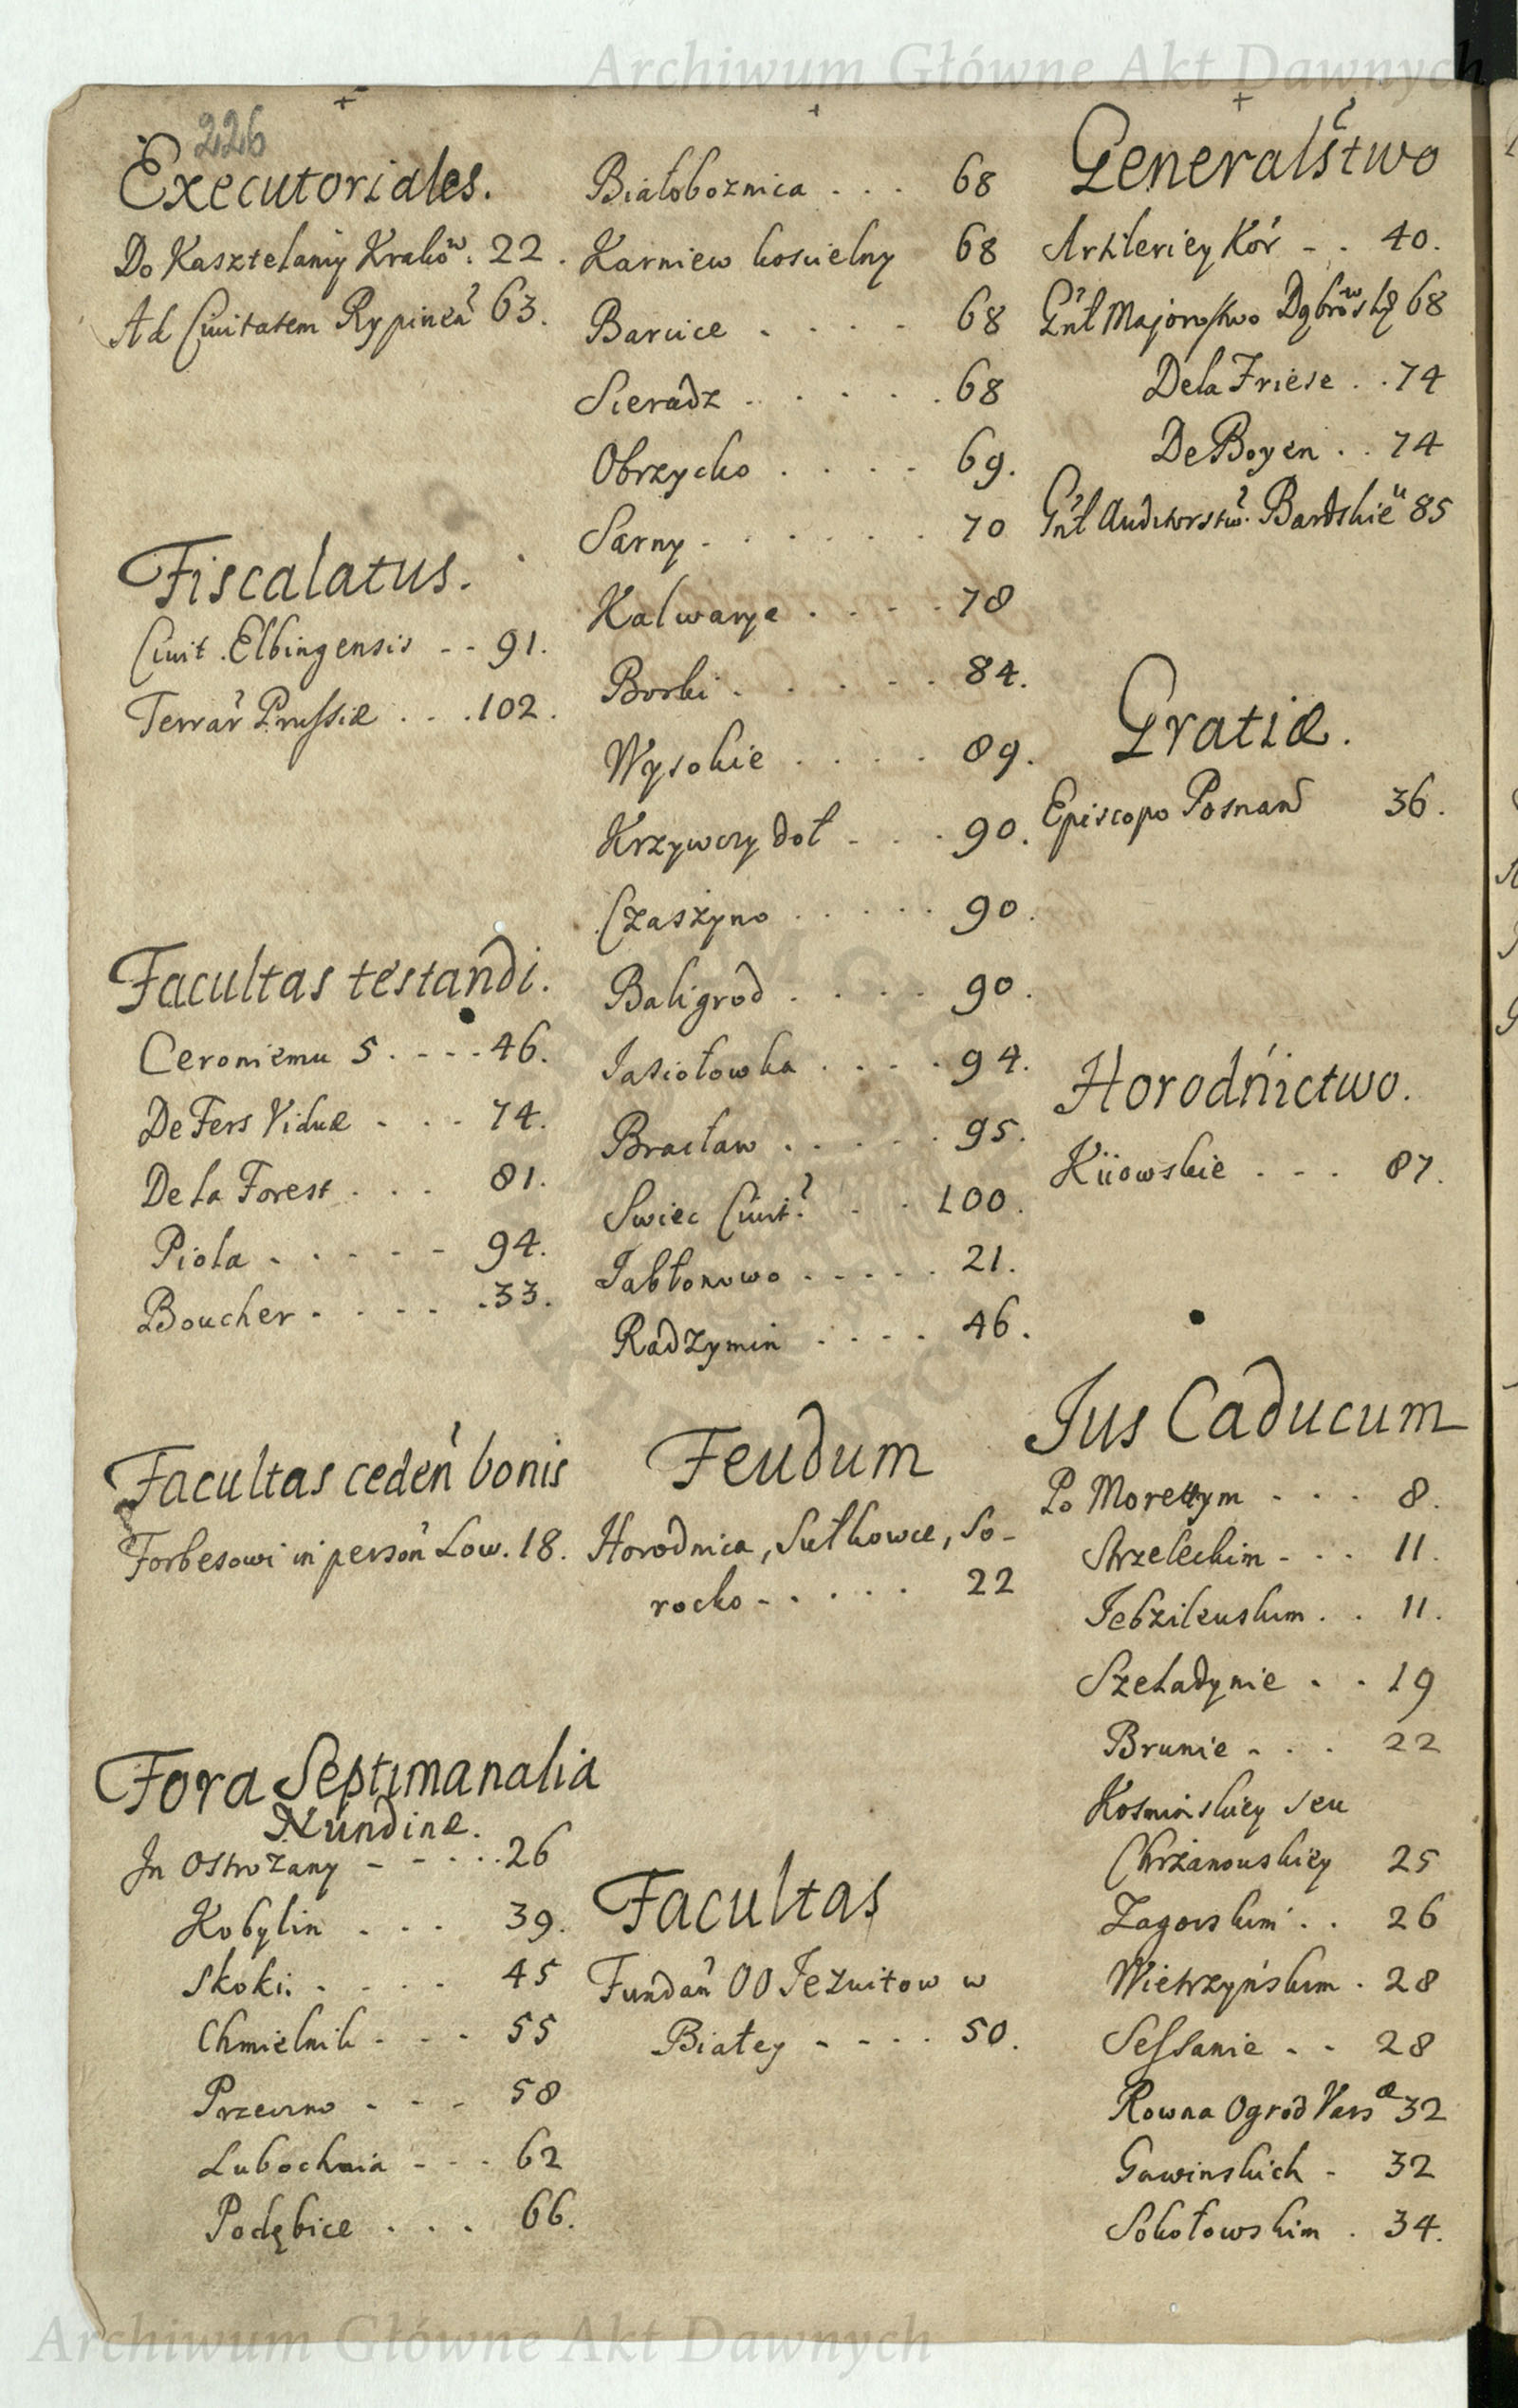 Archiwum Główne Akt Dawnych
226
Executoriales.
Do Kasztelaniy Kraków. 22.
Ad Civitatem Rypinen 63.
Fiscalatus.
Civit. Elbingensis - - 91.
Terrar Prussiæ . . . 102.
Facultas testandi.
Ceroniemu S. - - - 46.
De Fers Viduæ - . - 74.
De la Forest . . . 81.
Piola . . - - - 94.
Boucher . . . . . 33.
Facultas ceden bonis
Forbesowi in person Low. 18.
Fora Septimanalia
Nundinæ.
In Ostrożany - - . . . 26
Kobylin . . . 39.
Skoki . . . . 45
Chmielnik - - - 55
Przeczno . - - 58
Lubochnia - - - 62
Podębice . . . 66.
Białoboznica . . . 68
Karniew koscielny 68
Barcice . . . . 68
Sieradz . . . . . 68
Obrzycko . . . . 69.
Sarny - . . . . . 70
Kalwarya . . . . 78
Borki . . . . . 84.
Wysokie . . . . 89.
Krzywczy doł - . . 90.
Czaszyno . . . . . 90.
Baligrod . . . . 90.
Jasiołowka . . . . 94.
Bracław . . . . . 95.
Swiec Civit . . 100.
Jabłonowo . . . . . 21.
Radzymin . . . . 46.
Feudum
Horodnica, Sułkowce, So-
rocko - . . . . 22
Facultas
Fundan OO Jezuitow w
Białey - - . . 50.
Generalstwo
Artileriey Kor - . . 40.
Gnł Majorostwo Dąbrowskg 68
De la Friese . . 74
De Boyen . . 74
Gnł Auditorstw. Bardskie 85
Gratiæ.
Episcopo Posnan 36.
Horodnictwo.
Kiiowskie . - . 87.
Jus Caducum
Po Morettym . . . 8.
Strzeleckim - . . 11.
Jebzileuskim . . 11.
Szeladynie . . 19
Brunie . . . 22
Kosminskiey seu
Chrżanouskiey 25
Zagorskim . . 26
Wietrzyńskim . 28
Sessanie . . 28
Rowna Ogrod Vars æ 32
Gawinskich - 32
Sokołowskim . 34.
Archiwum Główne Akt Dawnych